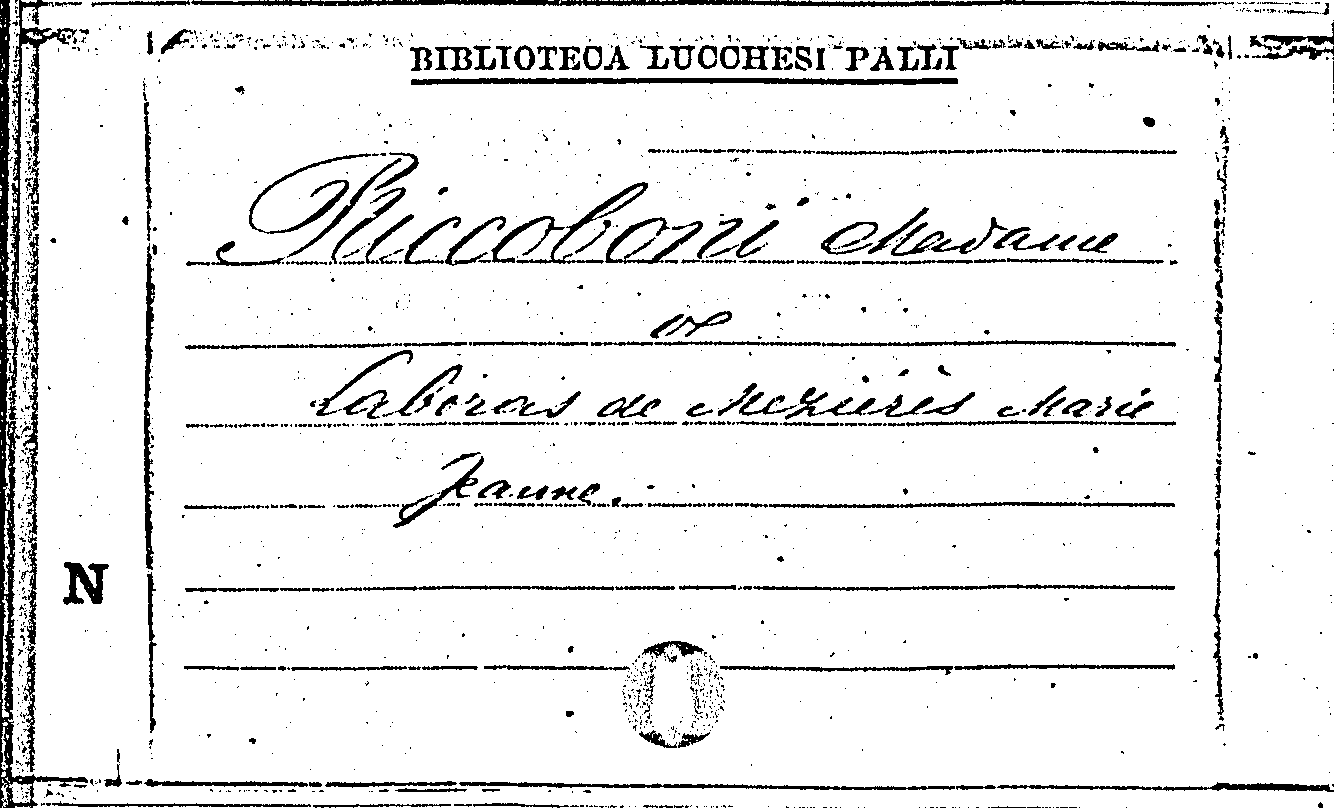 BIBLIOTECA LUCCHESI PALLI
Riccoboni Madame
Laboras de Mezières Marie
Jeanne.
N